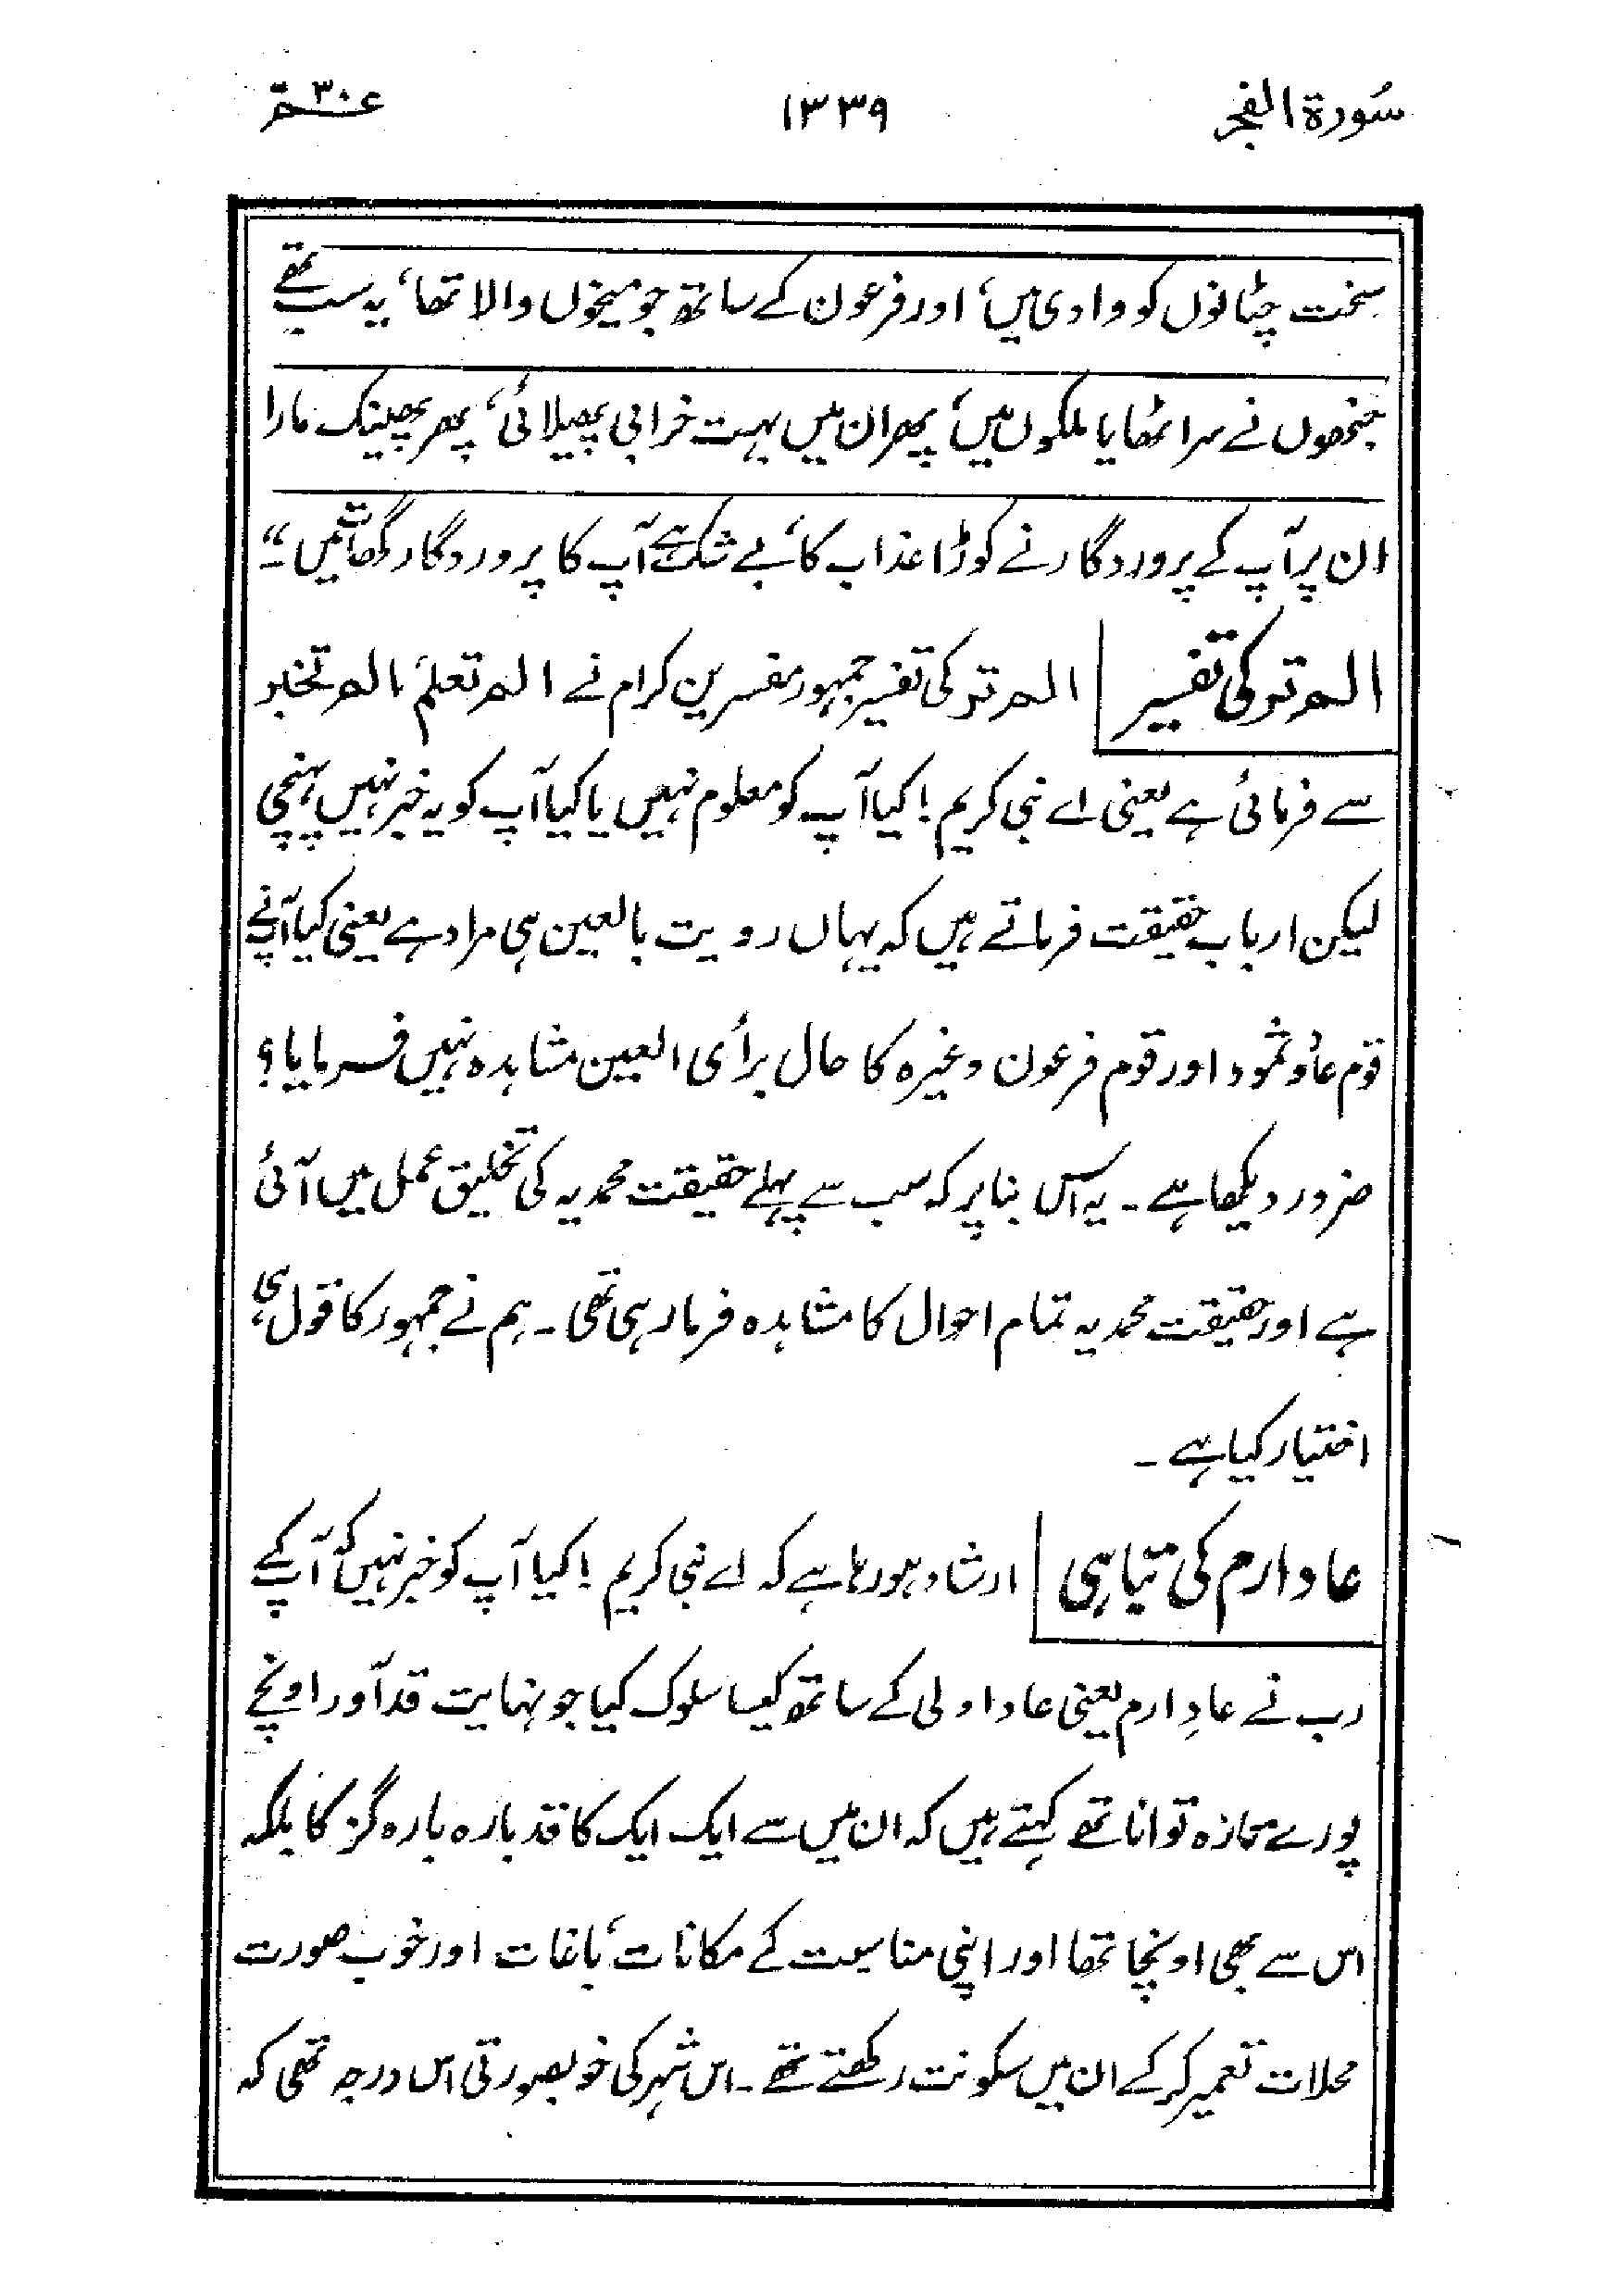 سُورۃ الفجر ۱۳۳۹ عمّ ۳۰
سخت چٹانوں کو وادی میں، اور فرعون کے ساتھ جو میخوں والا تھا، یہ سب تھے
جنھوں نے سر اٹھایا ملکوں میں، پھر ان میں بہت خرابی پھیلائی، پھر پھینک مارا
ان پر آپ کے پروردگار نے کوڑا عذاب کا، بے شک ہے آپ کا پروردگار گھات میں۔"
الم تر کی تفسیر الم تر کی تفسیر جمہور مفسرین کرام نے الم تعلم، الم تخبر
سے فرمائی ہے یعنی اے نبی کریم! کیا آپ کو معلوم نہیں یا کیا آپ کو یہ خبر نہیں پہنچی
لیکن ارباب حقیقت فرماتے ہیں کہ یہاں رویت بالعین ہی مراد ہے یعنی کیا آپنے
قوم عاد و ثمود اور قوم فرعون وغیرہ کا حال برأی العین مشاہدہ نہیں فرمایا؟
ضرور دیکھا ہے۔ یہ اس بنا پر کہ سب سے پہلے حقیقت محمدیہ کی تخلیق عمل میں آئی
ہے اور حقیقت محمدیہ تمام احوال کا مشاہدہ فرما رہی تھی۔ ہم نے جمہور کا قول ہی
اختیار کیا ہے۔
عاد ارم کی تباہی ارشاد ہو رہا ہے کہ اے نبی کریم! کیا آپ کو خبر نہیں کہ آپ کے
رب نے عادِ ارم یعنی عاد اولی کے ساتھ کیسا سلوک کیا جو نہایت قد آور اونچے
پورے تازہ توانا تھے کہتے ہیں کہ ان میں سے ایک ایک کا قد بارہ بارہ گز کا بلکہ
اس سے بھی اونچا تھا اور اپنی مناسبت کے مکانات، باغات اور خوب صورت
محلات تعمیر کر کے ان میں سکونت رکھتے تھے۔ اس شہر کی خوبصورتی اس درجہ تھی کہ